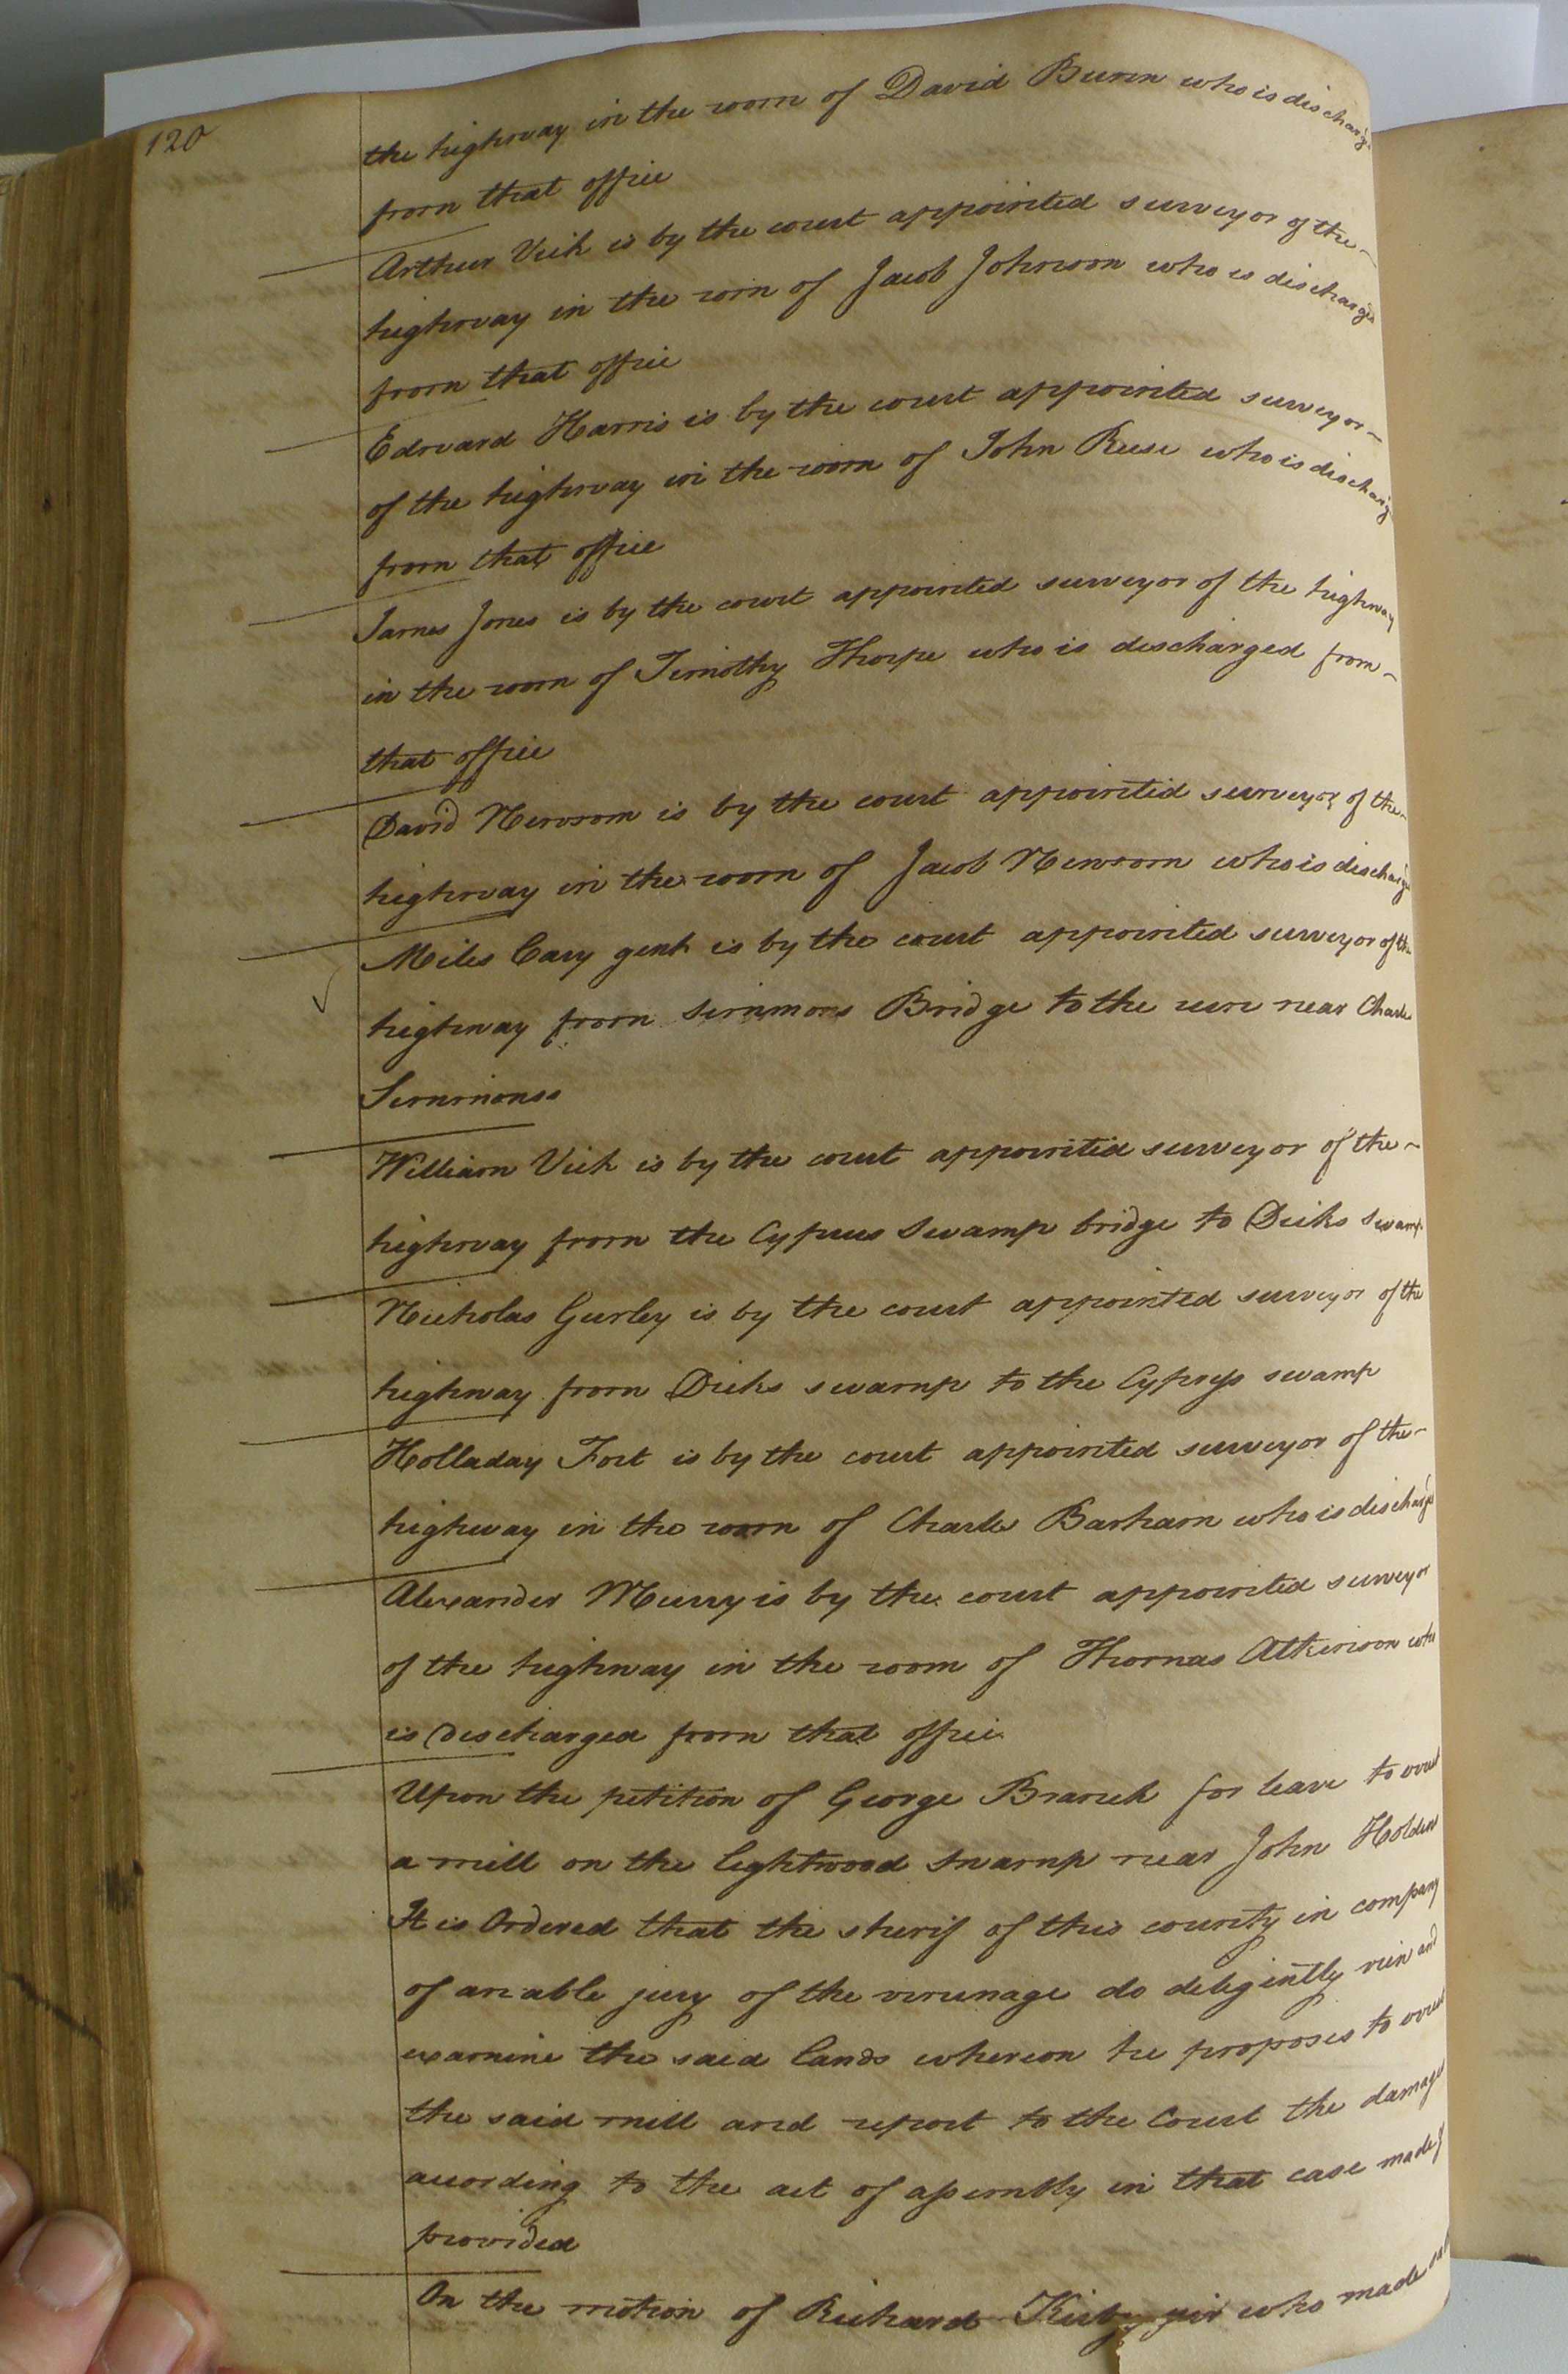 120
the highway in the room of David Bunn who is discharg'd
from that office
Arthur Vick is by the court appointed surveyor of the
highway in the rom of Jacob Johnson who is discharged
from that office
Edward Harris is by the court appointed surveyor
of the highway in the room of John Reese who is discharg'd
from that office
James Jones is by the court appointed surveyor of the highway
in the room of Timothy Thorpe who is discharged from
that office
David Newsom is by the court appointed surveyor of the
highway in the room of Jacob Newsom who is discharg'd
Miles Cary gent is by the court appointed surveyor of the
highway from Simmons Bridge to the run near Charles
Simmonss
William Vick is by the court appointed surveyor of the
highway from the Cypress Swamp bridge to Dicks Swamp
Nicholas Gurley is by the court appointed surveyor of the
highway from Dicks swamp to the Cypress swamp
Holladay Fort is by the court appointed surveyor of the
highway in the room of Charles Barham who is discharg'd
Alexander Murry is by the court appointed surveyor
of the highway in the room of Thomas Atkinson who
is discharged from that office
Upon the petition of George Branch for leave to erect
a mill on the lightwood swamp near John Holdens
It is Ordered that the sherif of this county in company
of an able jury of the vicinage do deligintly view and
examine the said lands whereon he proposes to erect
the said mill and report to the Court the damages
according to the act of assembly in that case made &
provided
On the motion of Richard Kirby who made